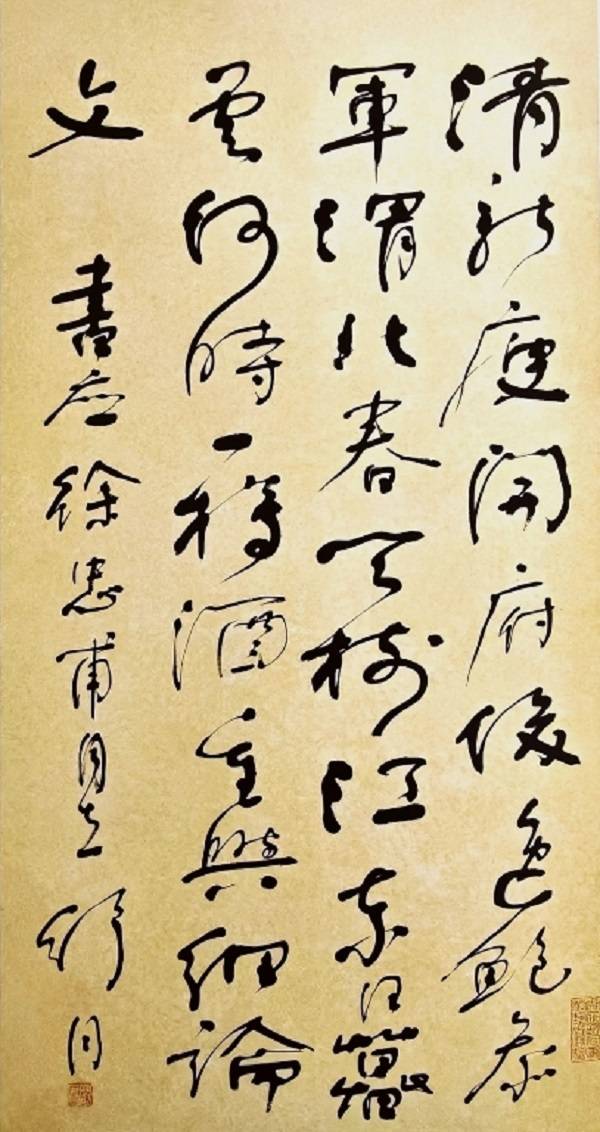 清新庾開府俊逸鮑參
軍渭北春天樹江東日暮
雲何時一樽酒重與細論
文 書应徐忠甫同志 舒同